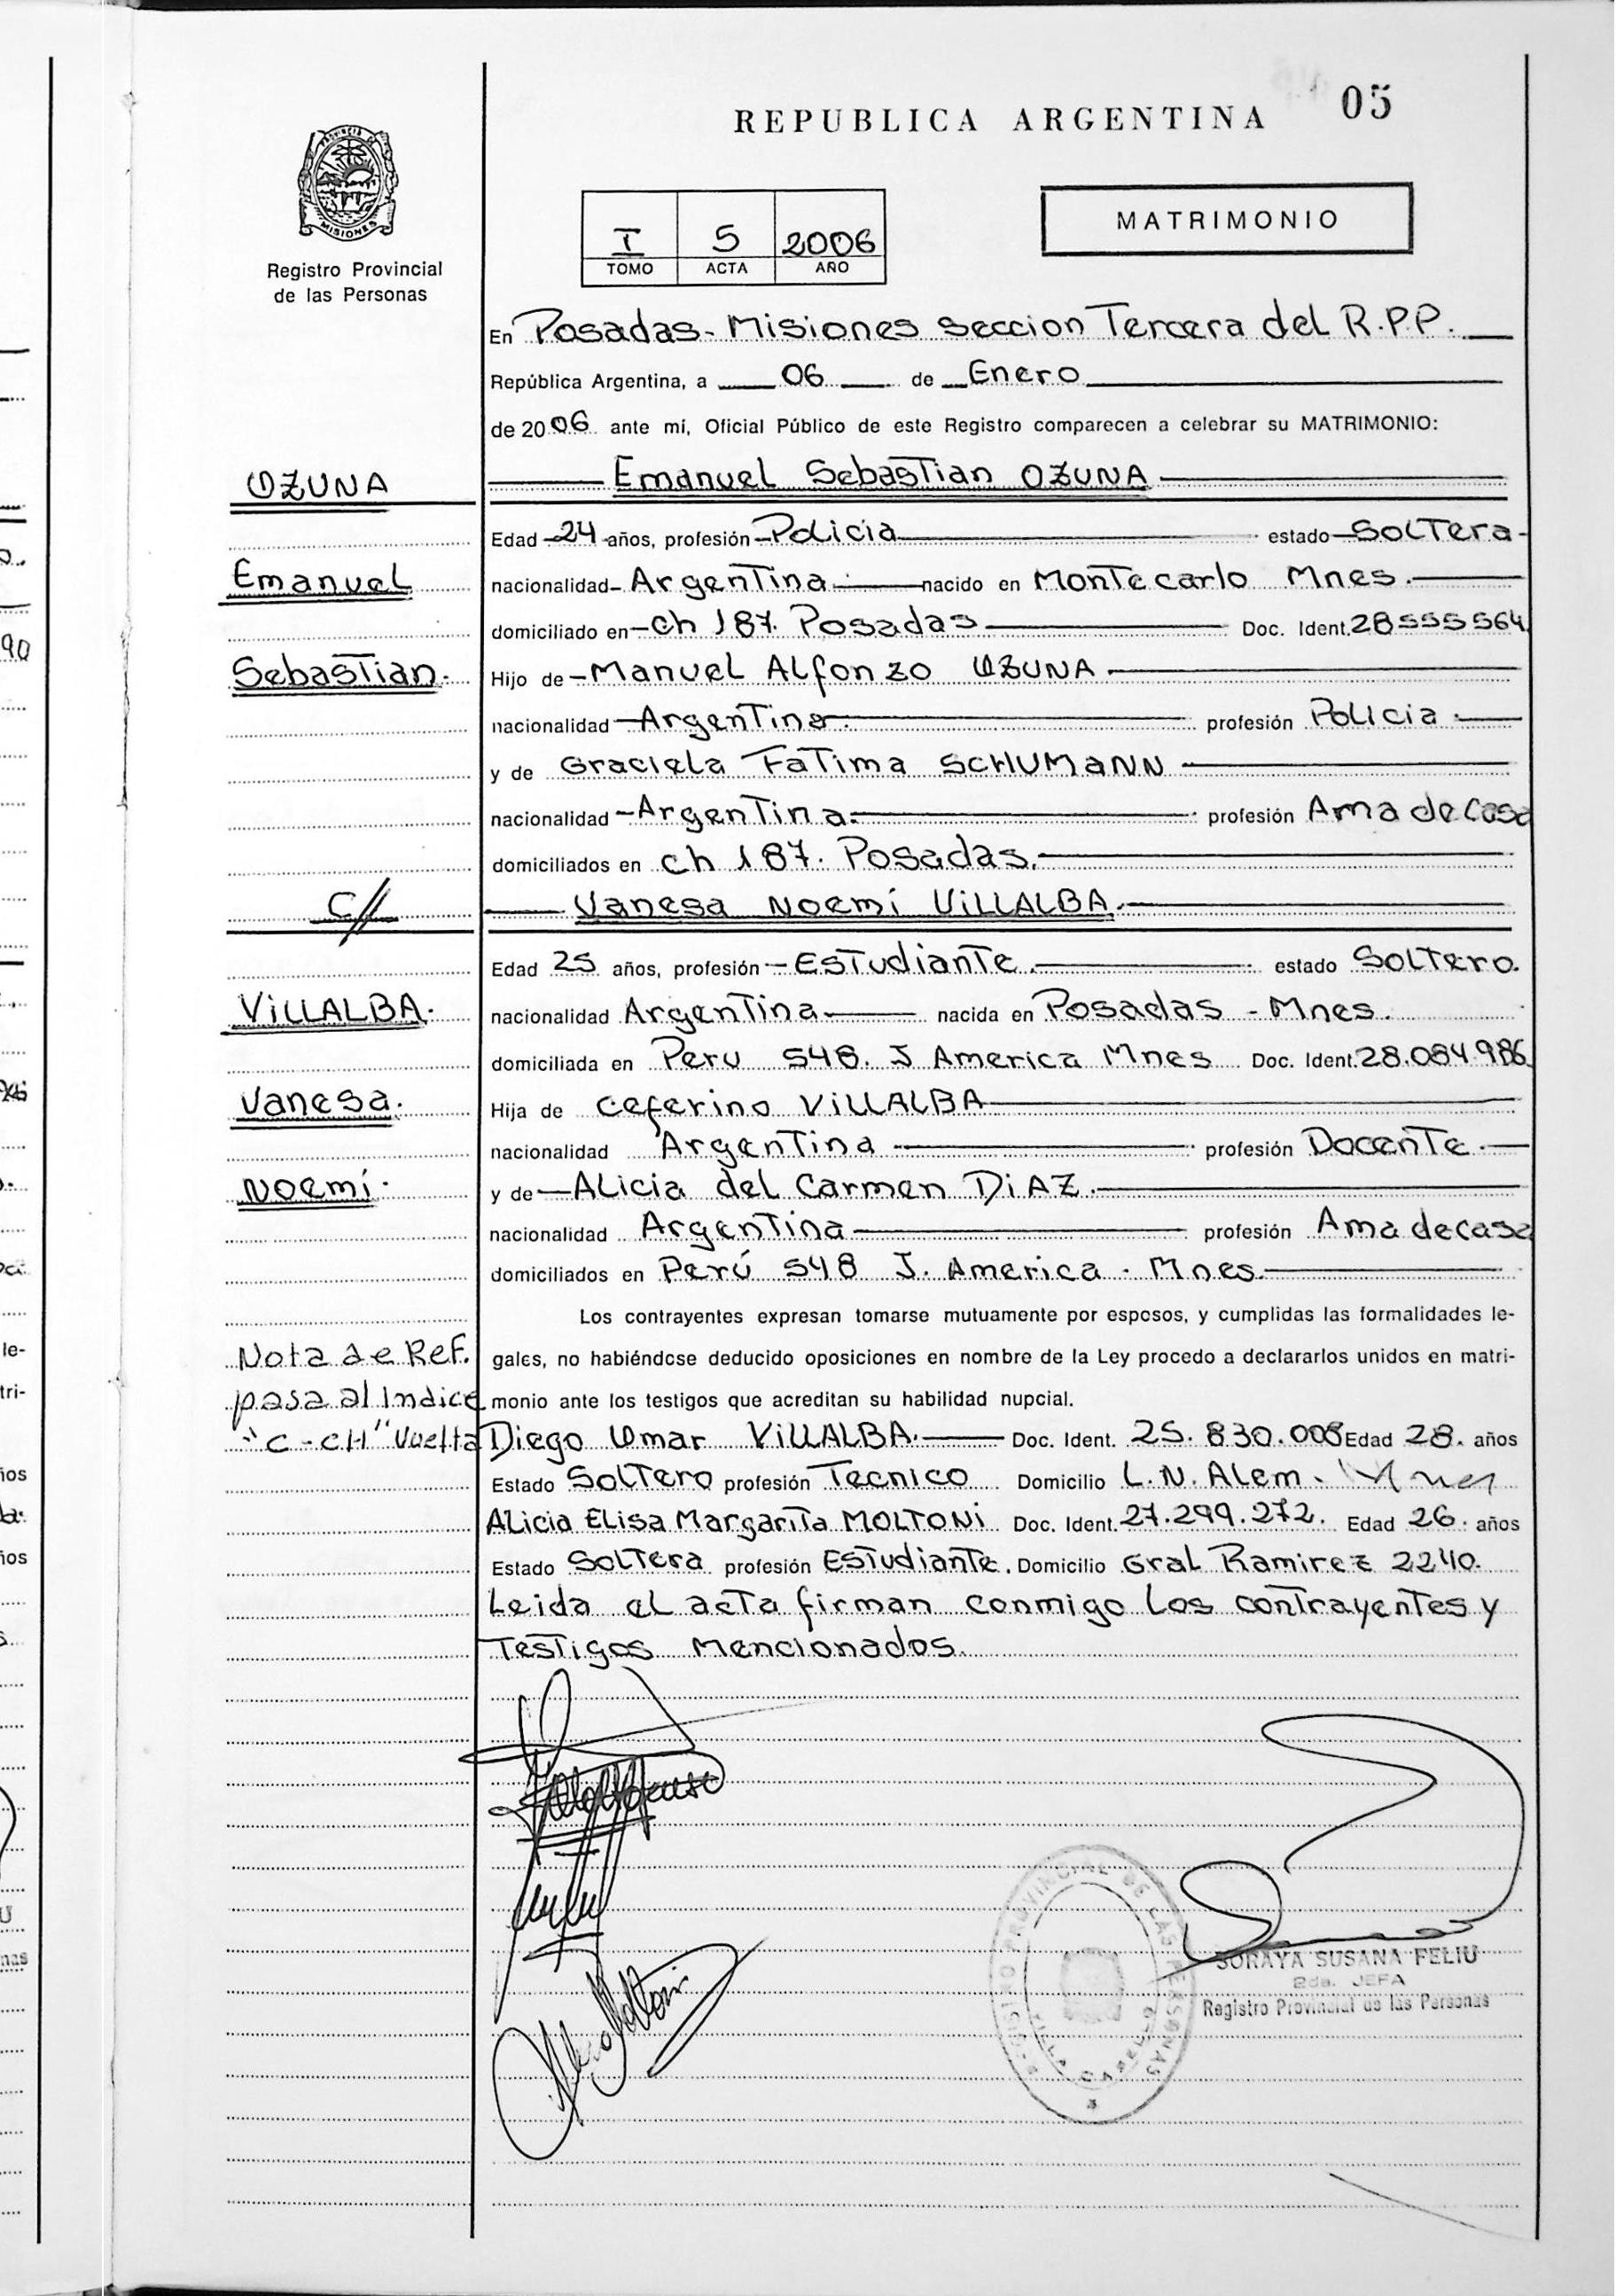 REPUBLICA ARGENTINA 05
MISIONES
Registro Provincial
de las Personas
I 5 2006
TOMO ACTA AÑO
MATRIMONIO
En Posadas - Misiones seccion Tercera del R.P.P.
República Argentina, a 06 de Enero
de 2006 ante mí, Oficial Público de este Registro comparecen a celebrar su MATRIMONIO:
OZUNA
Emanuel Sebastian OZUNA
Edad 24 años, profesión Policia estado Soltera
Emanuel
nacionalidad Argentina nacido en Montecarlo Mnes.
domiciliado en ch 187. Posadas Doc. Ident. 28555564
Sebastian.
Hijo de Manuel Alfonzo OZUNA
nacionalidad Argentina. profesión Policia
y de Graciela Fatima SCHUMANN
nacionalidad Argentina. profesión Ama de Casa
domiciliados en ch 187. Posadas.
C//
Vanesa Noemí VILLALBA.
Edad 25 años, profesión Estudiante. estado Soltero.
VILLALBA.
nacionalidad Argentina nacida en Posadas - Mnes.
domiciliada en Peru 548. J America Mnes Doc. Ident. 28.084.986
Vanesa.
Hija de Ceferino VILLALBA
nacionalidad Argentina profesión Docente.
Noemí.
y de Alicia del Carmen DIAZ.
nacionalidad Argentina profesión Ama de casa
domiciliados en Perú 548 J. America. Mnes.
Los contrayentes expresan tomarse mutuamente por esposos, y cumplidas las formalidades le-
Nota de Ref.
gales, no habiéndose deducido oposiciones en nombre de la Ley procedo a declararlos unidos en matri-
pasa al Indice
monio ante los testigos que acreditan su habilidad nupcial.
"C-CH" Vuelta
Diego Omar VILLALBA. Doc. Ident. 25.830.008 Edad 28. años
Estado Soltero profesión Tecnico Domicilio L.N. Alem. Mnes
Alicia Elisa Margarita MOLTONI Doc. Ident. 27.299.272. Edad 26. años
Estado Soltera profesión Estudiante. Domicilio Gral Ramirez 2240.
Leida el acta firman conmigo los contrayentes y
Testigos Mencionados.
REGISTRO PROVINCIAL DE LAS PERSONAS
SORAYA SUSANA FELIU
2da. JEFA
Registro Provincial de las Personas